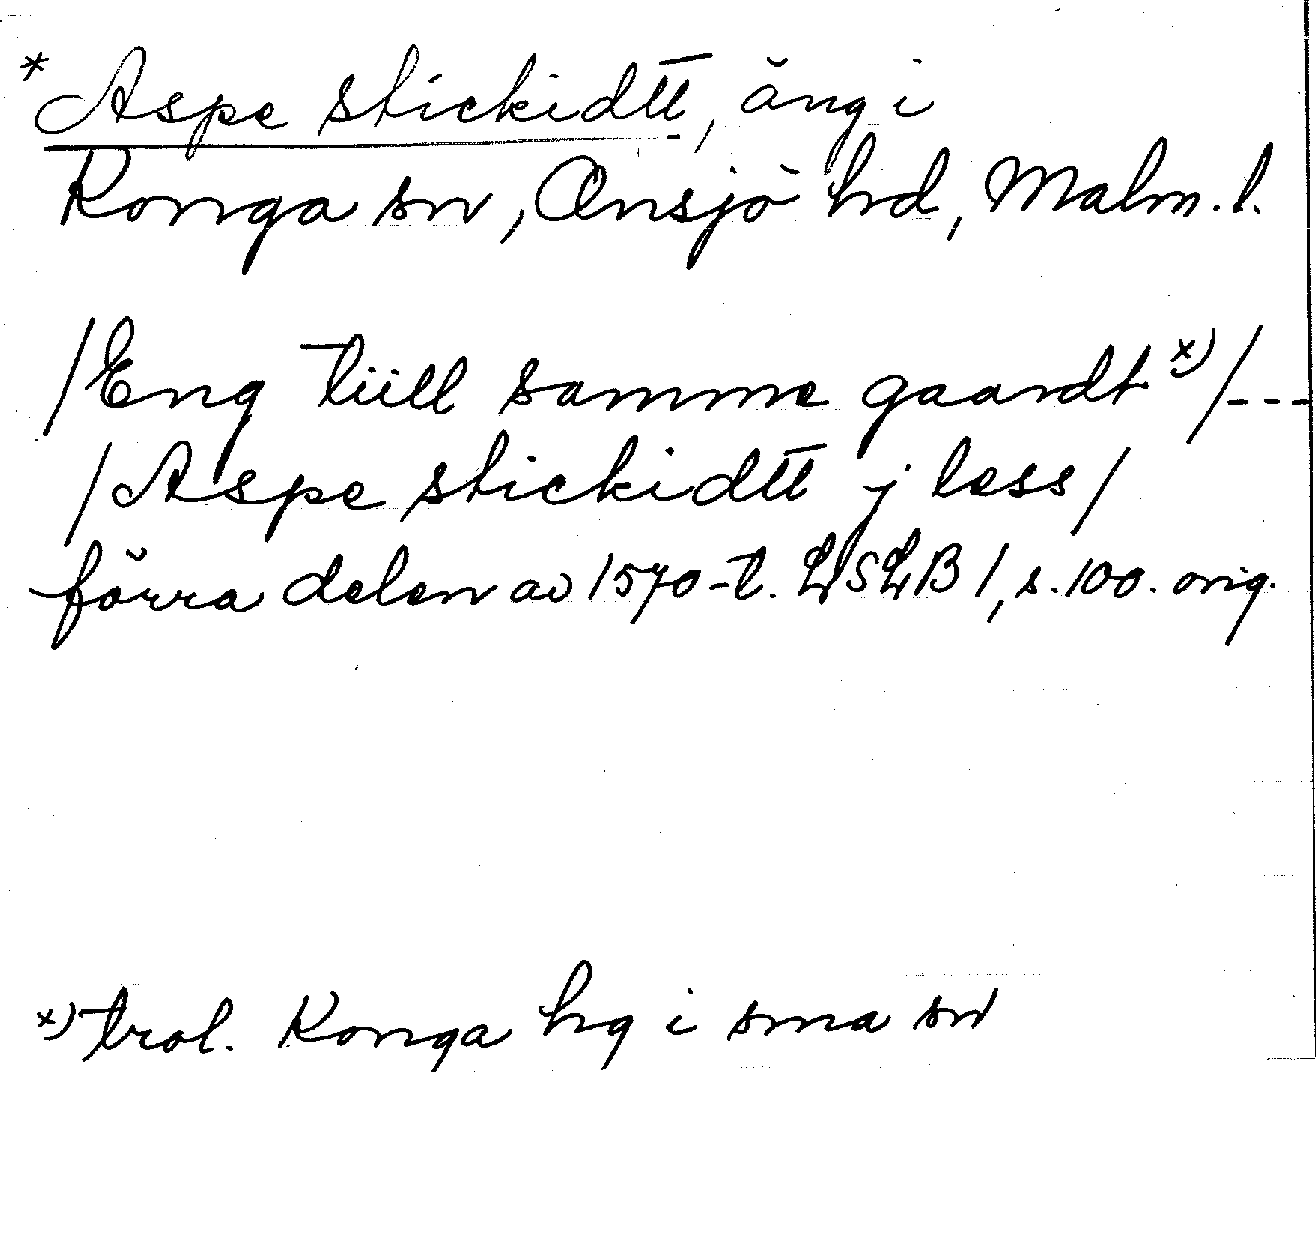 *Aspe stickidtt, äng i
Konga sn, Onsjö hd, Malm. l.
/Eng tiill samme gaardt x)/---
/Aspe stickidtt j less/
förra delen av 1570-t. LSLB 1, s. 100. orig.
x) trol. Konga hg i sma sn